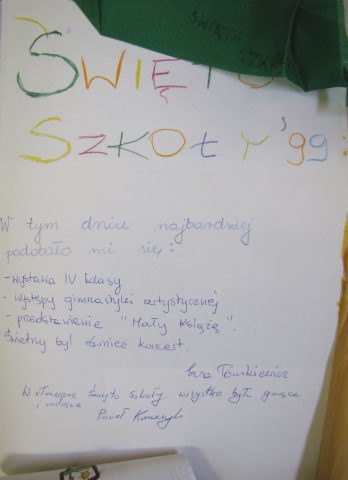 ŚWIĘTA
SZKOŁ
ŚWIĘTO
SZKOŁY '99
W tym dniu najbardziej
podobało mi się:
- wystawa IV klasy
- występy gimnastyki artystycznej
- przedstawienie "Mały Książę".
Świetny był również koncert.
Ewa
W święto szkoły wszystko było
i
Paweł